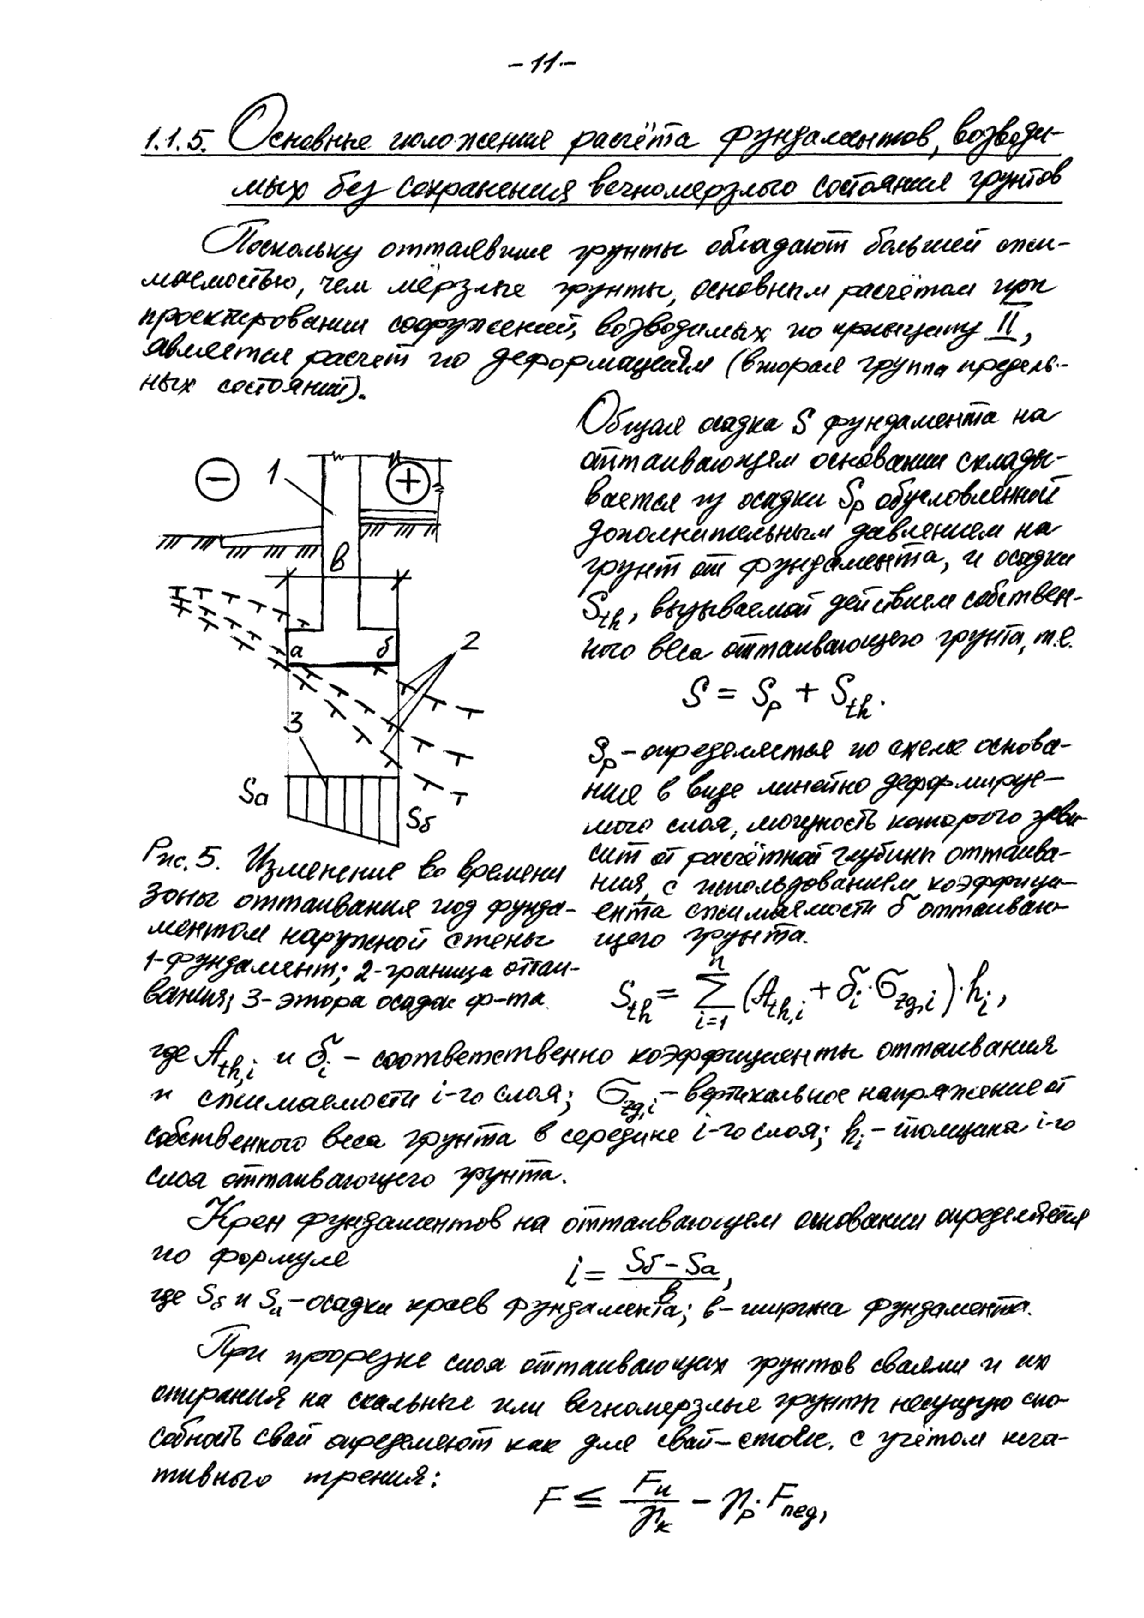 -11-
1.1.5. Основные положения расчёта фундаментов, возводи-
мых без сохранения вечномерзлого состояния грунтов
Поскольку оттаявшие грунты обладают большей сжи-
маемостью, чем мёрзлые грунты, основным расчётом при
проектировании сооружений, возводимых по принципу II,
является расчет по деформациям (вторая группа предель-
ных состояний).
Общая осадка S фундамента на
оттаивающем основании склады-
вается из осадки Sp обусловленной
дополнительным давлением на
грунт от фундамента, и осадки
Sth, вызываемой действием собствен-
ного веса оттаивающего грунта, т.е.
S = Sp + Sth.
Sp - определяется по схеме основа-
ния в виде линейно деформируе-
мого слоя, мощность которого зави-
сит от расчётной глубины оттаива-
ния, с использованием коэффици-
ента сжимаемости δ оттаиваю-
щего грунта.
Sth = n∑i=1 (Ath,i + δi·σzg,i)·hi,
− 1 +
в
а б 2
3
Sа Sб
Рис. 5. Изменение во времени
зоны оттаивания под фунда-
ментом наружной стены
1-фундамент; 2-граница оттаи-
вания; 3-эпюра осадок ф-та
где Ath,i и δi - соответственно коэффициенты оттаивания
и сжимаемости i-го слоя; σzg,i - вертикальное напряжение от
собственного веса грунта в середине i-го слоя; hi - толщина i-го
слоя оттаивающего грунта.
Крен фундаментов на оттаивающем основании определяется
по формуле
i = (Sб - Sа)/в,
где Sб и Sа - осадки краев фундамента; в - ширина фундамента.
При прорезке слоя оттаивающих грунтов сваями и их
опирания на скальные или вечномерзлые грунты несущую спо-
собность свай определяют как для свай-стоек, с учётом нега-
тивного трения:
F ≤ Fu/γк - γp·Fnеg,